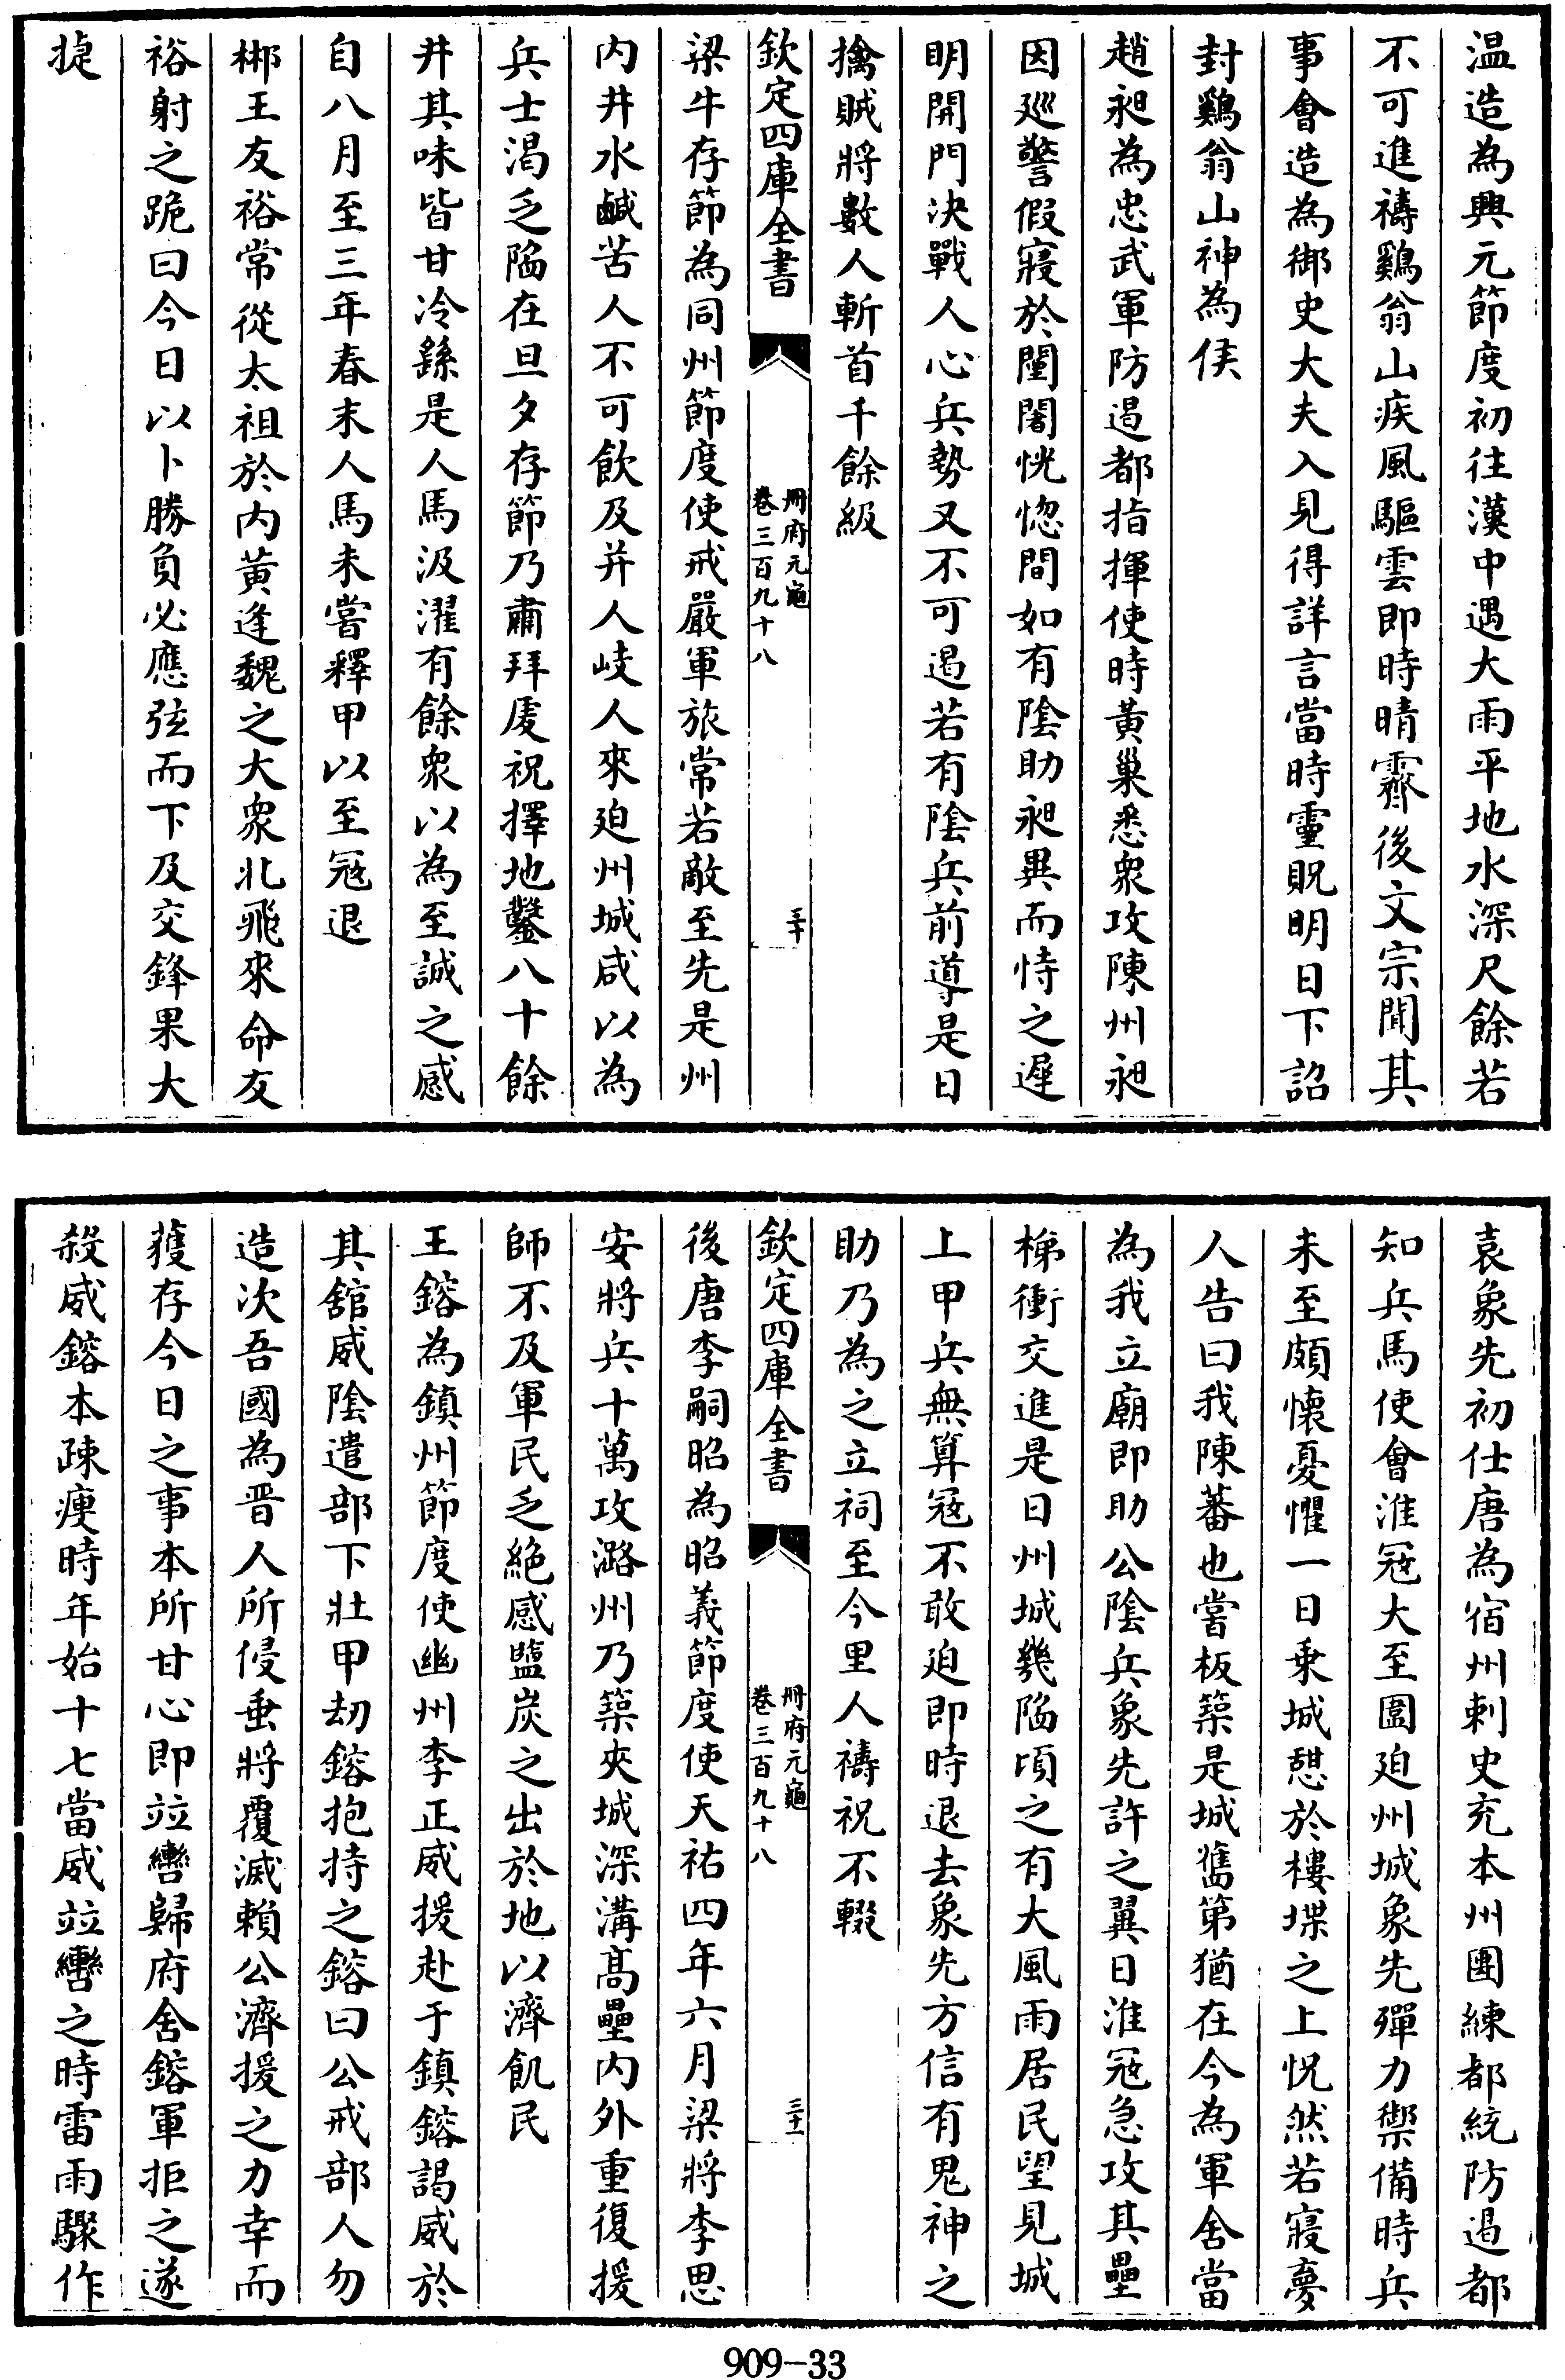 温造為興元節度初往漢中遇大雨平地水深尺餘若
不可進禱鷄翁山疾風驅雲即時晴霽後文宗聞其
事會造為御史大夫入見得詳言當時靈貺明日下詔
封鷄翁山神為侯
趙昶為忠武軍防遏都指揮使時黃巢悉衆攻陳州昶
因廵警假寢於闉闍恍惚間如有陰助昶異而恃之遲
明開門決戰人心兵勢又不可遏若有陰兵前導是日
擒賊將數人斬首千餘級
欽定四庫全書
冊府元龜
卷三百九十八
三十
梁牛存節為同州節度使戒嚴軍旅常若敵至先是州
内井水鹹苦人不可飲及并人岐人來廹州城咸以為
兵士渴乏陷在旦夕存節乃肅拜虔祝擇地鑿八十餘
井其味皆甘冷繇是人馬汲濯有餘衆以為至誠之感
自八月至三年春末人馬未嘗釋甲以至冦退
郴王友裕常從太祖於内黄逢魏之大衆北飛來命友
裕射之跪曰今日以卜勝負必應弦而下及交鋒果大
㨗
袁象先初仕唐為宿州刺史充本州團練都統防遏都
知兵馬使會淮冦大至圍廹州城象先殫力禦備時兵
未至頗懷憂懼一日乗城憇於樓堞之上怳然若寢夢
人告曰我陳蕃也嘗板築是城舊第猶在今為軍舍當
為我立廟即助公陰兵象先許之翼日淮冦急攻其壘
梯衝交進是日州城幾陷頃之有大風雨居民望見城
上甲兵無算冦不敢廹即時退去象先方信有鬼神之
助乃為之立祠至今里人禱祝不輟
欽定四庫全書
冊府元龜
卷三百九十八
三十一
後唐李嗣昭為昭義節度使天祐四年六月梁將李思
安將兵十萬攻潞州乃築夾城深溝髙壘内外重復援
師不及軍民乏絶感鹽炭之出於地以濟飢民
王鎔為鎮州節度使幽州李正威援赴于鎮鎔謁威於
其舘威陰遣部下壯甲刼鎔抱持之鎔曰公戒部人勿
造次吾國為晋人所侵垂將覆滅賴公濟援之力幸而
獲存今日之事本所甘心即竝轡歸府舍鎔軍拒之遂
殺威鎔本疎瘦時年始十七當威竝轡之時雷雨驟作
909-33